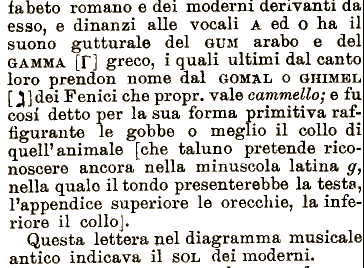 fabeto romano e dei moderni derivanti da
esso, e dinanzi alle vocali A ed O ha il
suono gutturale del GUM arabo e del
GAMMA [Γ] greco, i quali ultimi dal canto
loro prendon nome dal GOMAL o GHIMEL
[ג] dei Fenici che propr. vale cammello; e fu
cosí detto per la sua forma primitiva raf-
figurante le gobbe o meglio il collo di
quell'animale [che taluno pretende rico-
noscere ancora nella minuscola latina g,
nella qualo il tondo presenterebbe la testa,
l'appendice superiore le orecchie, la infe-
riore il collo].
Questa lettera nel diagramma musicale
antico indicava il SOL dei moderni.